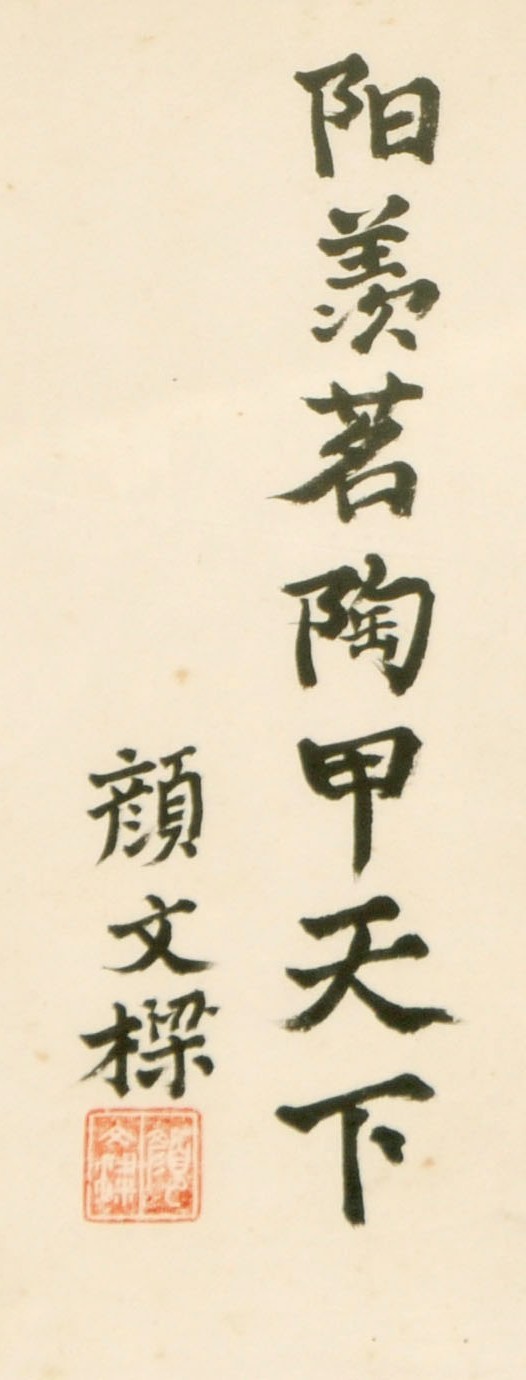 阳羨茗陶甲天下
顔文樑